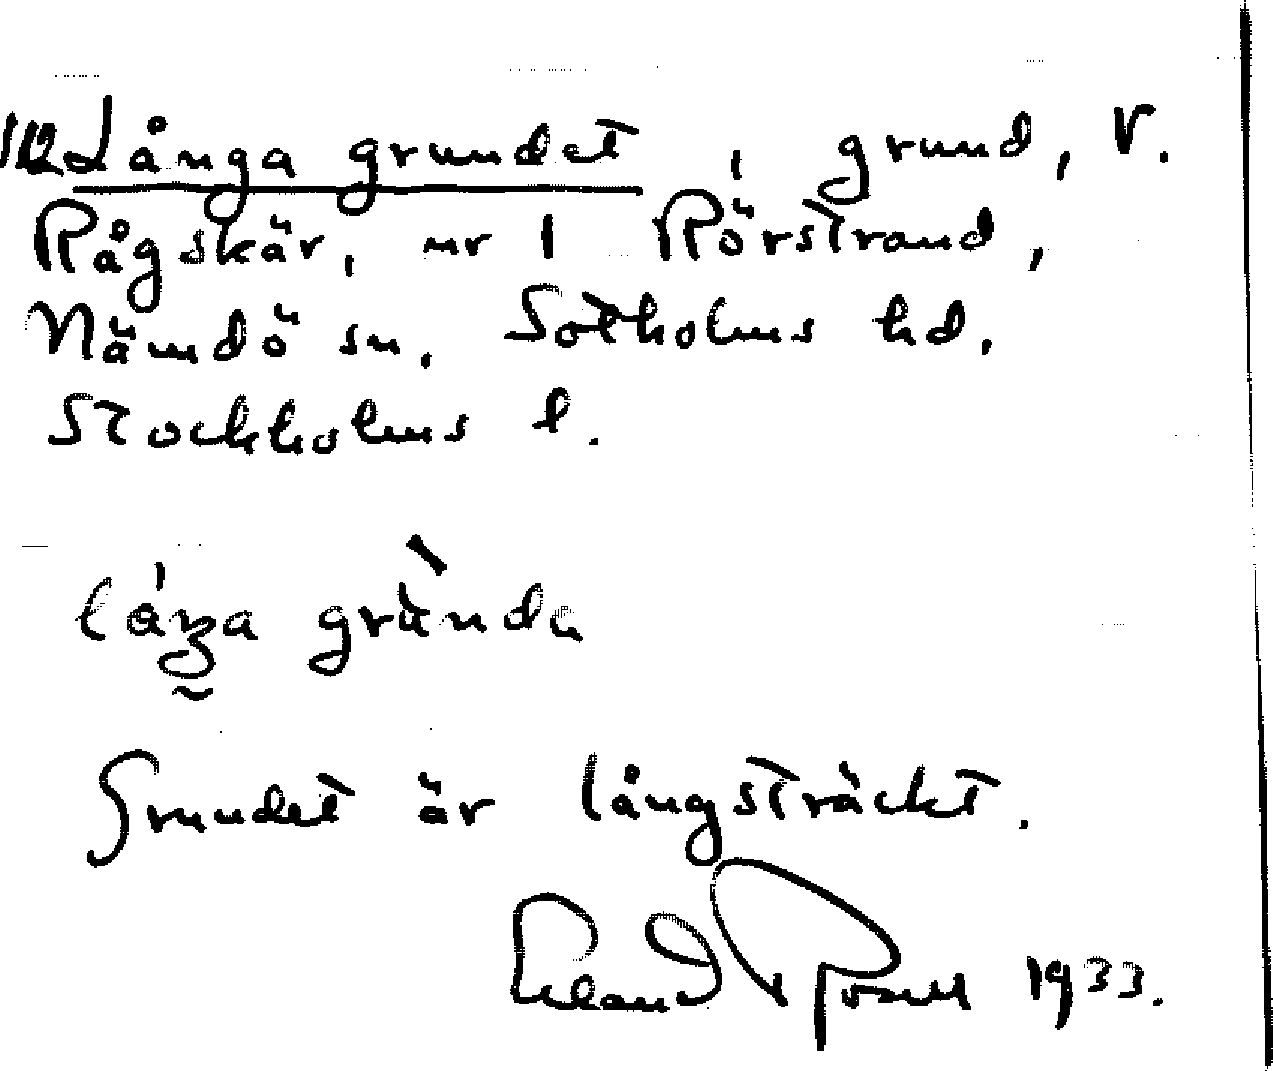 112 Långa grundet, grund, V.
Rågskär, nr 1 Rörstrand,
Nämdö sn, Sotholms hd,
Stockholms l.
láŋa grùnda
Grundet är långsträckt.
Erland Rosell 1933.